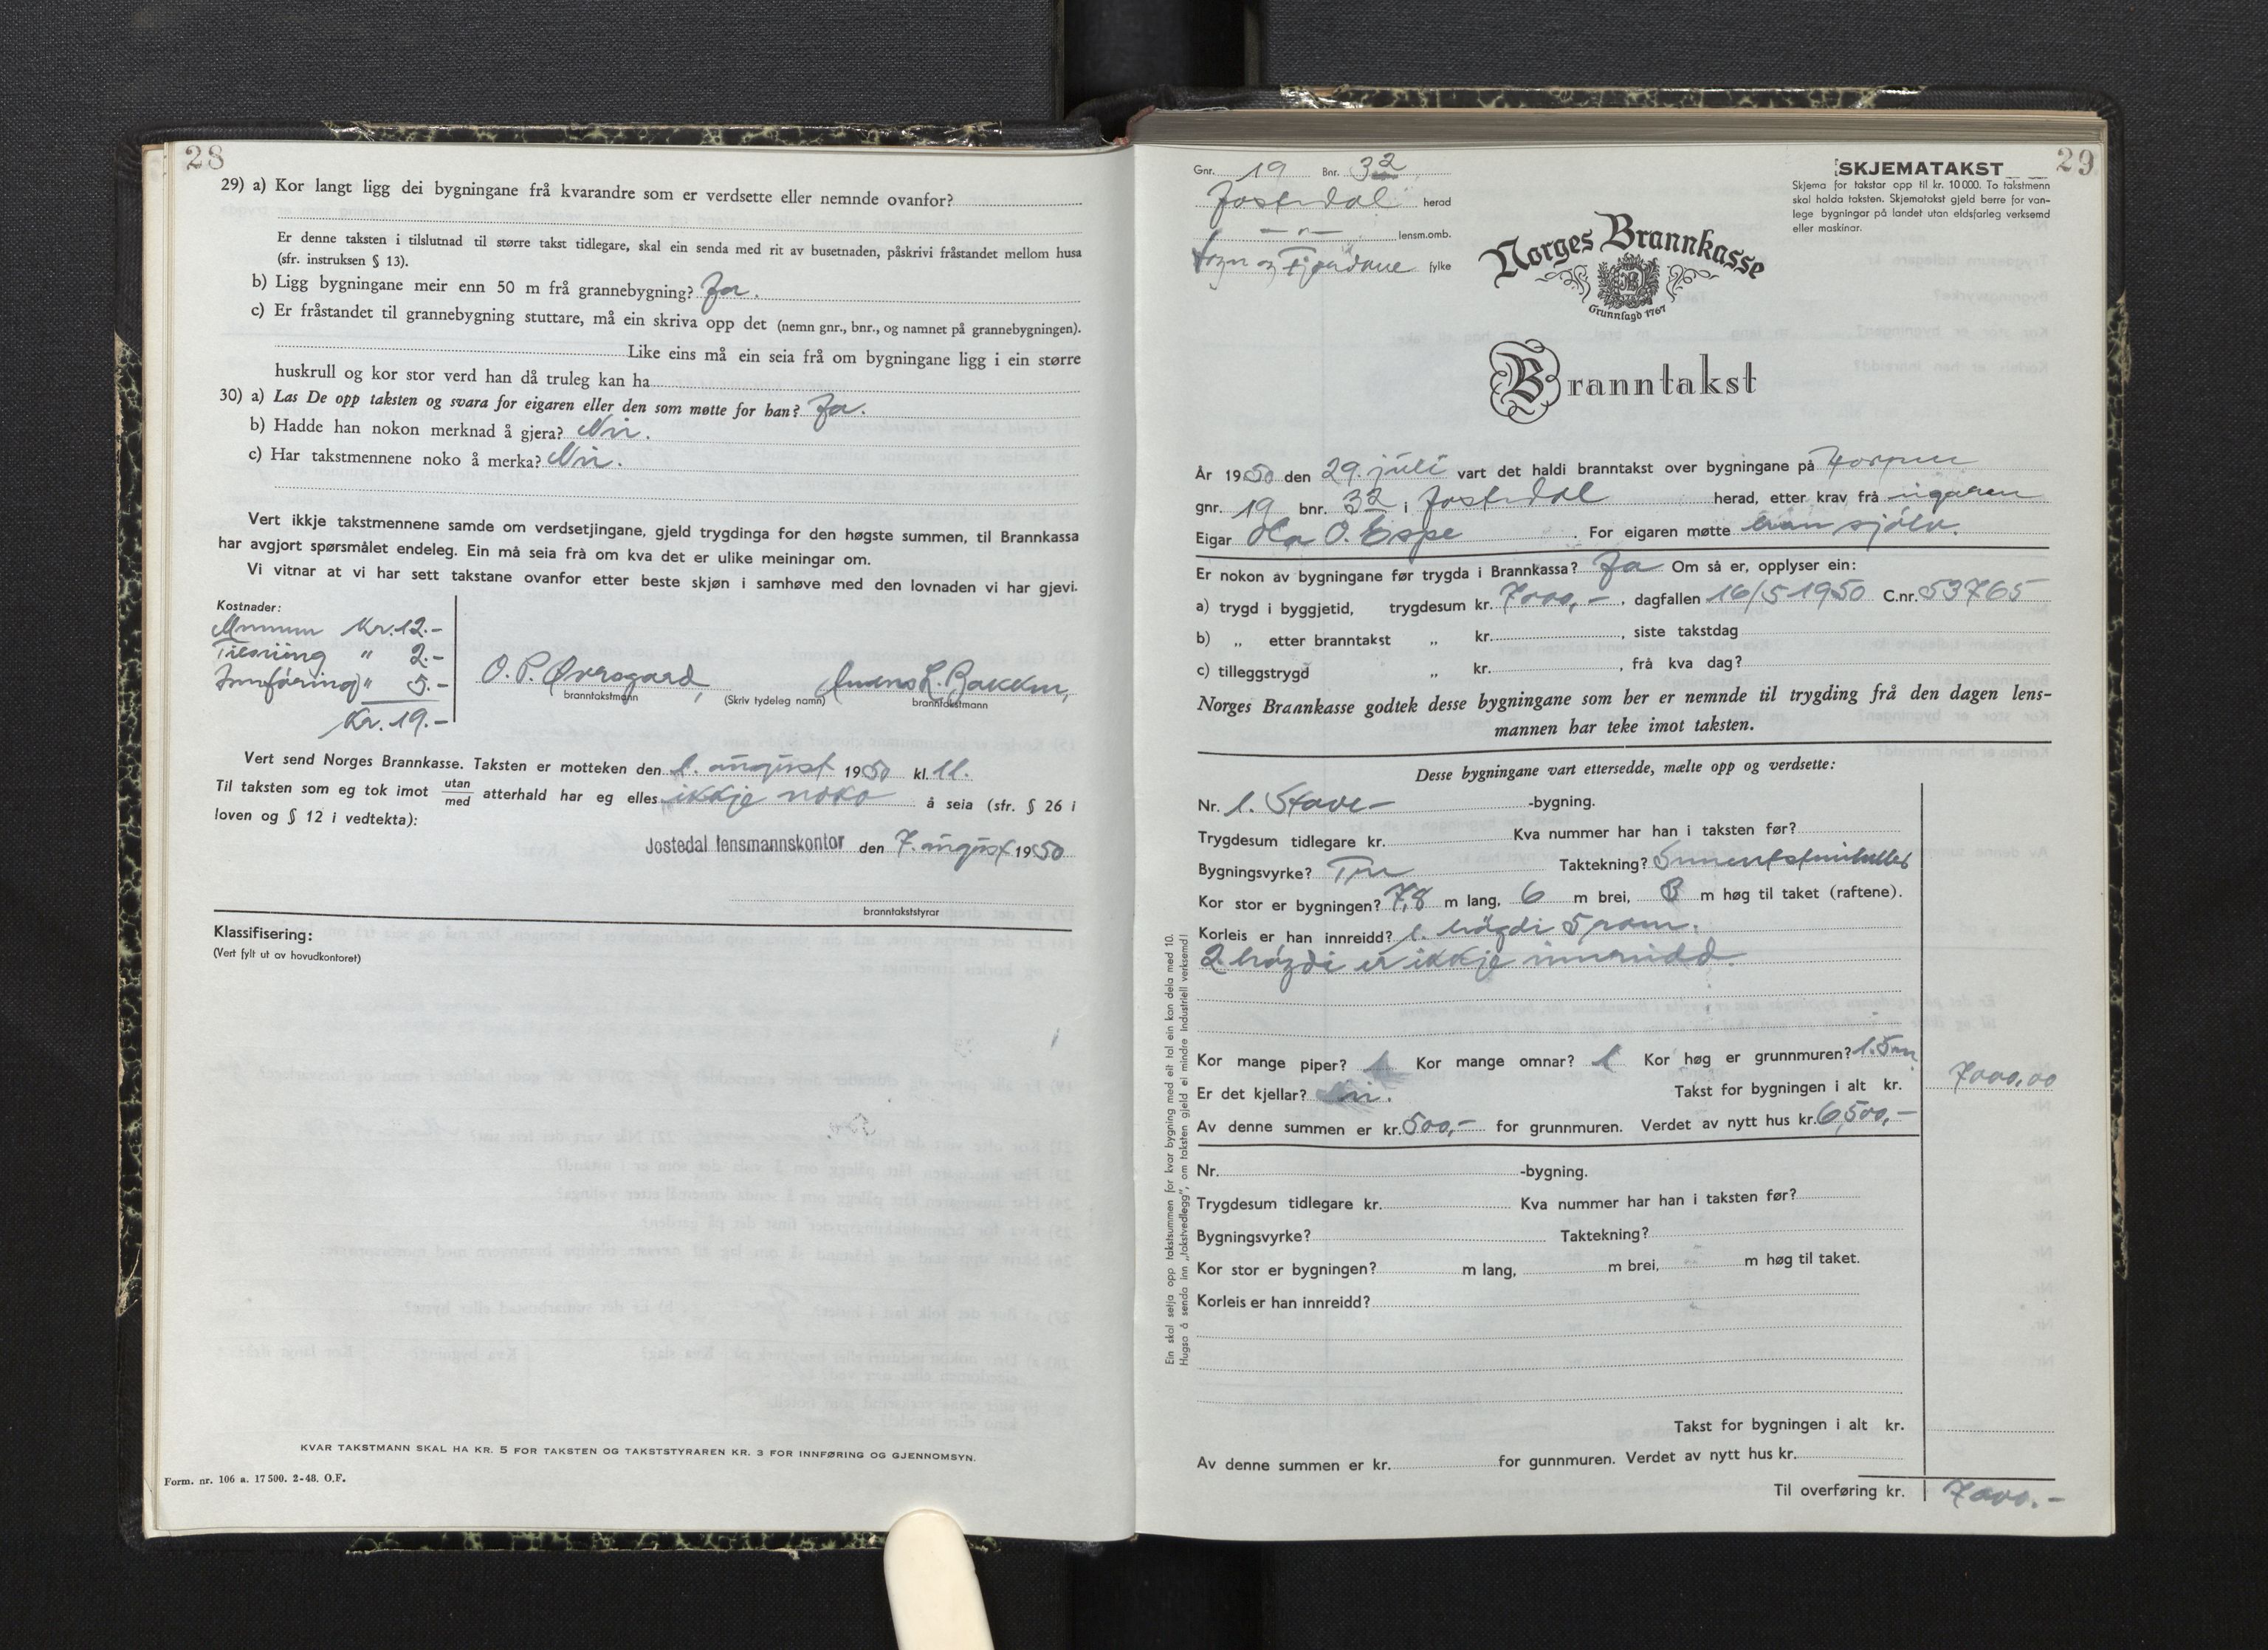 28
29) a) Kor langt ligg dei bygningane frå kvarandre som er verdsette eller nemnde ovanfor?
Er denne taksten i tilslutnad til større takst tidlegare, skal ein senda med rit av busetnaden, påskrivi fråstandet mellom husa
(sfr. instruksen § 13).
b) Ligg bygningane meir enn 50 m frå grannebygning? Ja.
c) Er fråstandet til grannebygning stuttare, må ein skriva opp det (nemn gnr., bnr., og namnet på grannebygningen).
Like eins må ein seia frå om bygningane ligg i ein større
huskrull og kor stor verd han då truleg kan ha
30) a) Las De opp taksten og svara for eigaren eller den som møtte for han? Ja.
b) Hadde han nokon merknad å gjera? Nei.
c) Har takstmennene noko å merka? Nei.
Vert ikkje takstmennene samde om verdsetjingane, gjeld trygdinga for den høgste summen, til Brannkassa
har avgjort spørsmålet endeleg. Ein må seia frå om kva det er ulike meiningar om.
Vi vitnar at vi har sett takstane ovanfor etter beste skjøn i samhøve med den lovnaden vi har gjevi.
Kostnader:
Kr. 12.-
" 2.-
Innføring " 5.-
Kr. 19.-
O. P. Øvregaard,
L. Bakken,
branntakstmann (Skriv tydeleg namn) branntakstmann
Vert send Norges Brannkasse. Taksten er motteken den 1. august 1950 kl. 11.
Til taksten som eg tok imot utan/med atterhald har eg elles ikkje noko å seia (sfr. § 26 i
loven og § 12 i vedtekta):
Jostedal lensmannskontor den 7. august 1950
branntakststyrar
Klassifisering:
(Vert fylt ut av hovudkontoret)
KVAR TAKSTMANN SKAL HA KR. 5 FOR TAKSTEN OG TAKSTSTYRAREN KR. 3 FOR INNFØRING OG GJENNOMSYN.
Form. nr. 106 a. 17 500. 2-48. O.F.
29
Gnr. 19 Bnr. 32
Jostedal herad
— " — lensm.omb.
Sogn og Fjordane fylke
SKJEMATAKST
Skjema for takstar opp til kr. 10 000. To takstmenn
skal halda taksten. Skjematakst gjeld berre for van-
lege bygningar på landet utan eldsfarleg verksemd
eller maskinar.
Norges Brannkasse
Grunnlagd 1767
Branntakst
År 1950 den 29. juli vart det haldi branntakst over bygningane på
gnr. 19 bnr. 32 i Jostedal herad, etter krav frå eigaren
Eigar Ola O. Espe For eigaren møtte han sjølv.
Er nokon av bygningane før trygda i Brannkassa? Ja Om så er, opplyser ein:
a) trygd i byggjetid, trygdesum kr. 7000,-, dagfallen 16/5 1950 C.nr. 53765
b) „ etter branntakst „ kr. , siste takstdag
c) tilleggstrygd „ kr. , frå kva dag?
Norges Brannkasse godtek desse bygningane som her er nemnde til trygding frå den dagen lens-
mannen har teke imot taksten.
Desse bygningane vart ettersedde, mælte opp og verdsette:
Nr. 1. Stove- -bygning.
Trygdesum tidlegare kr. Kva nummer har han i taksten før?
Bygningsvyrke? Tre Taktekning? Sementsteinheller
Kor stor er bygningen? 7,8 m lang, 6 m brei, 3 m høg til taket (raftene).
Korleis er han innreidd? 1. høgdi 5 rom.
2 høgdi er ikkje innreidd.
Kor mange piper? 1 Kor mange omnar? 1 Kor høg er grunnmuren? 1.5m
Er det kjellar? Nei. Takst for bygningen i alt kr. 7000,00
Av denne summen er kr. 500,- for grunnmuren. Verdet av nytt hus kr. 6,500,-
Nr. -bygning.
Trygdesum tidlegare kr. Kva nummer har han i taksten før?
Bygningsvyrke? Taktekning?
Kor stor er bygningen? m lang, m brei, m høg til taket.
Korleis er han innreidd?
Takst for bygningen i alt kr.
Av denne summen er kr. for gunnmuren. Verdet av nytt hus kr.
Til overføring kr. 7000.-
Ein skal setja opp takstsummen for kvar bygning med eit tal ein kan dela med 10.
Hugsa å senda inn „takstvedlegg", om taksten gjeld ei mindre industriell verksemd!